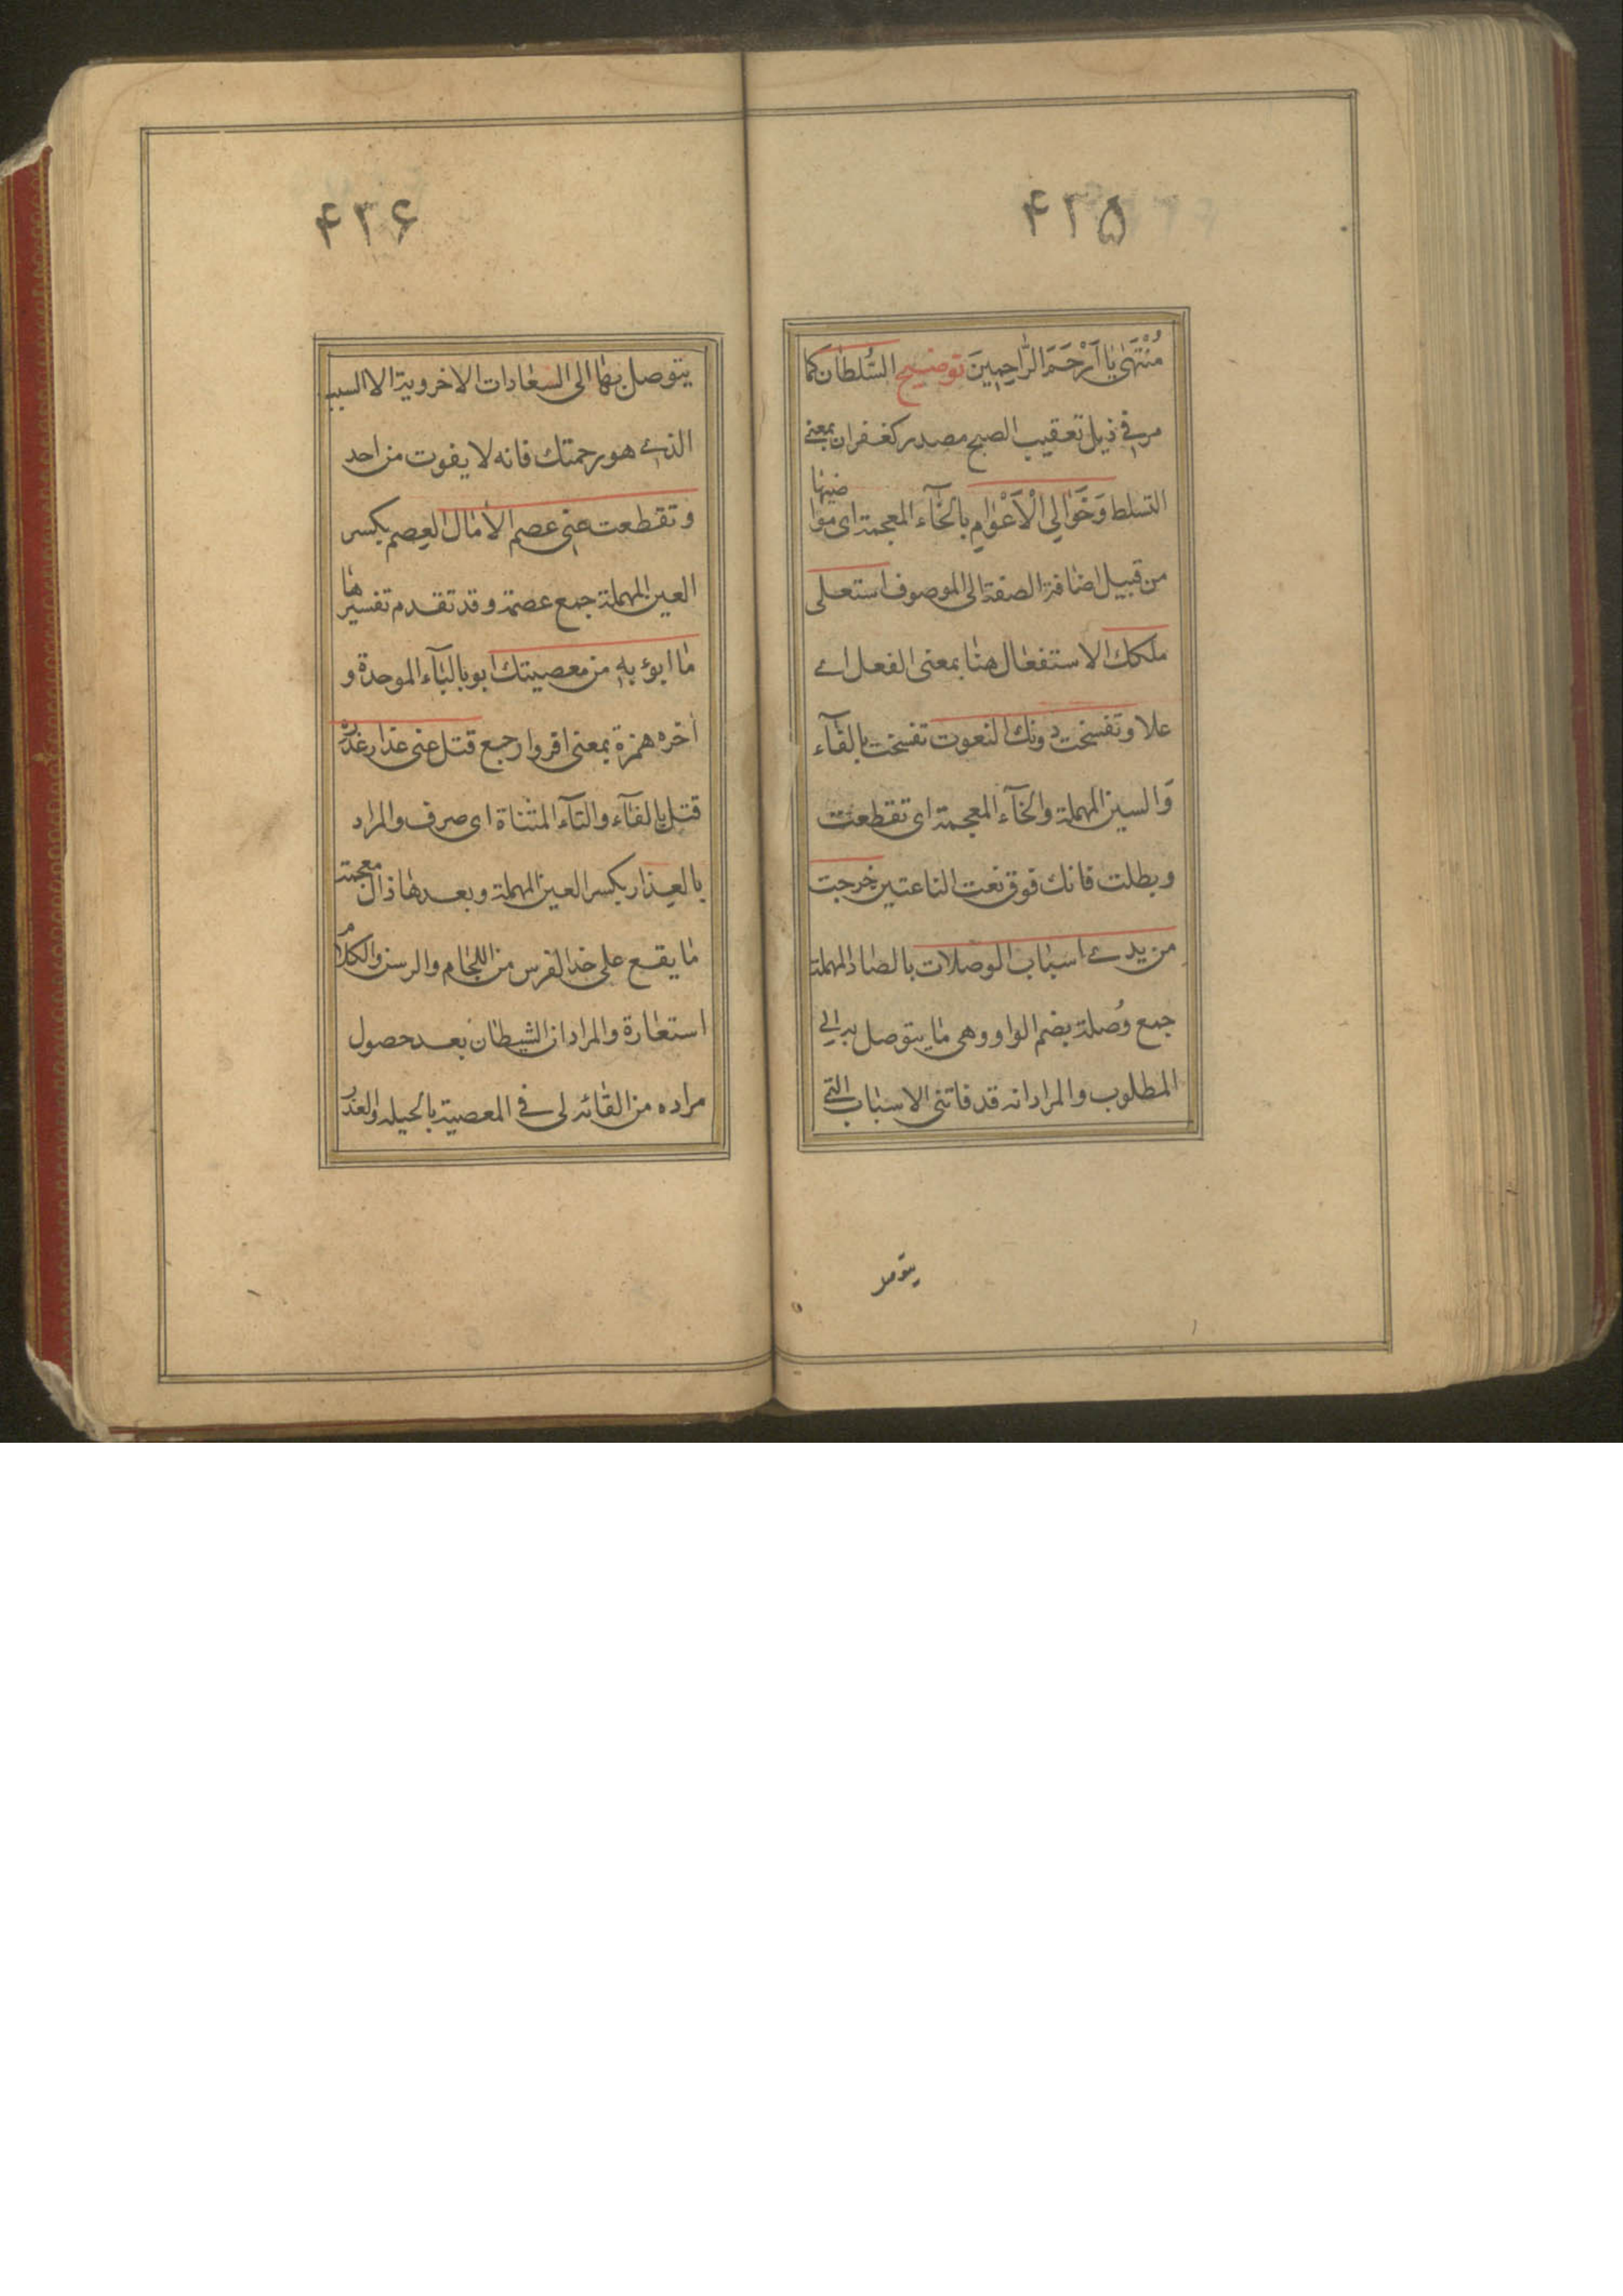 ۴۲۵
مُنْتَهٰى يٰا اَرْحَمَ الرّٰاحِمِينَ توضيح السُّلطان كما
مر في ذيل تعقيب الصبح مصدر كغفران بمعنى
التسلط وَخَوٰالِي الْاَعْوٰامِ بالخآء المعجمة اى مواضيها
من قبيل اضافة الصفة الى الموصوف استعلى
ملكك الاستفعال هنا بمعنى الفعل اے
علا و تفسخت دونك النعوت تفسخت بالفآء
وَالسين المهملة والخآء المعجمة اى تقطعت
وبطلت فانك فوق نعت الناعتين خرجت
من يدے اسباب الوصلات بالصاد المهملة
جمع وُصلة بضم الواو وهى ما يتوصل به الى
المطلوب والمراد انه قد فاتنى الاسباب التى
يتوصل
۴۲۶
يتوصل بها الى السعادات الاخروية الا السبب
الذے هو رحمتك فانه لا يفوت من احد
وتقطعت عنى عصم الأمال العِصم بكسر
العين المهملة جمع عصمة وقد تقدم تفسيرها
ما ابوء به من معصيتك ابو بالبآء الموحدة و
أخره همزة بمعنى اقر وارجع فتل عنى عذار غدره
فتل بالفآء والتآء المثناة اى صرف والمراد
بالعِذار بكسر العين المهملة وبعدها ذال معجمة
ما يقع على خد الفرس من اللجام والرسن والكلام
استعارة والمراد ان الشيطان بعد حصول
مراده من القائه لى في المعصية بالحيله والغدر